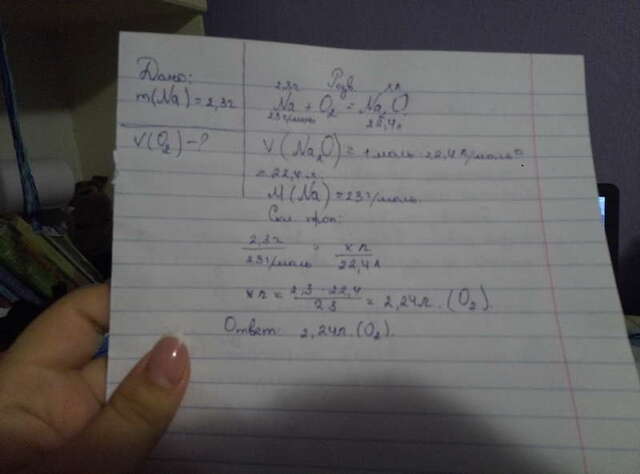 Дано:
m(Na) = 2,3г
V(O₂) - ?
Розв.
2,3г x л
Na + O₂ = Na₂O
23г/моль 22,4л
V(Na₂O) = 1 моль · 22,4 л/моль =
= 22,4 л.
M(Na) = 23г/моль.
Скл. проп:
2,3г / 23г/моль = x л / 22,4л
x л = 2,3 · 22,4 / 23 = 2,24л. (O₂).
Ответ: 2,24л. (O₂).